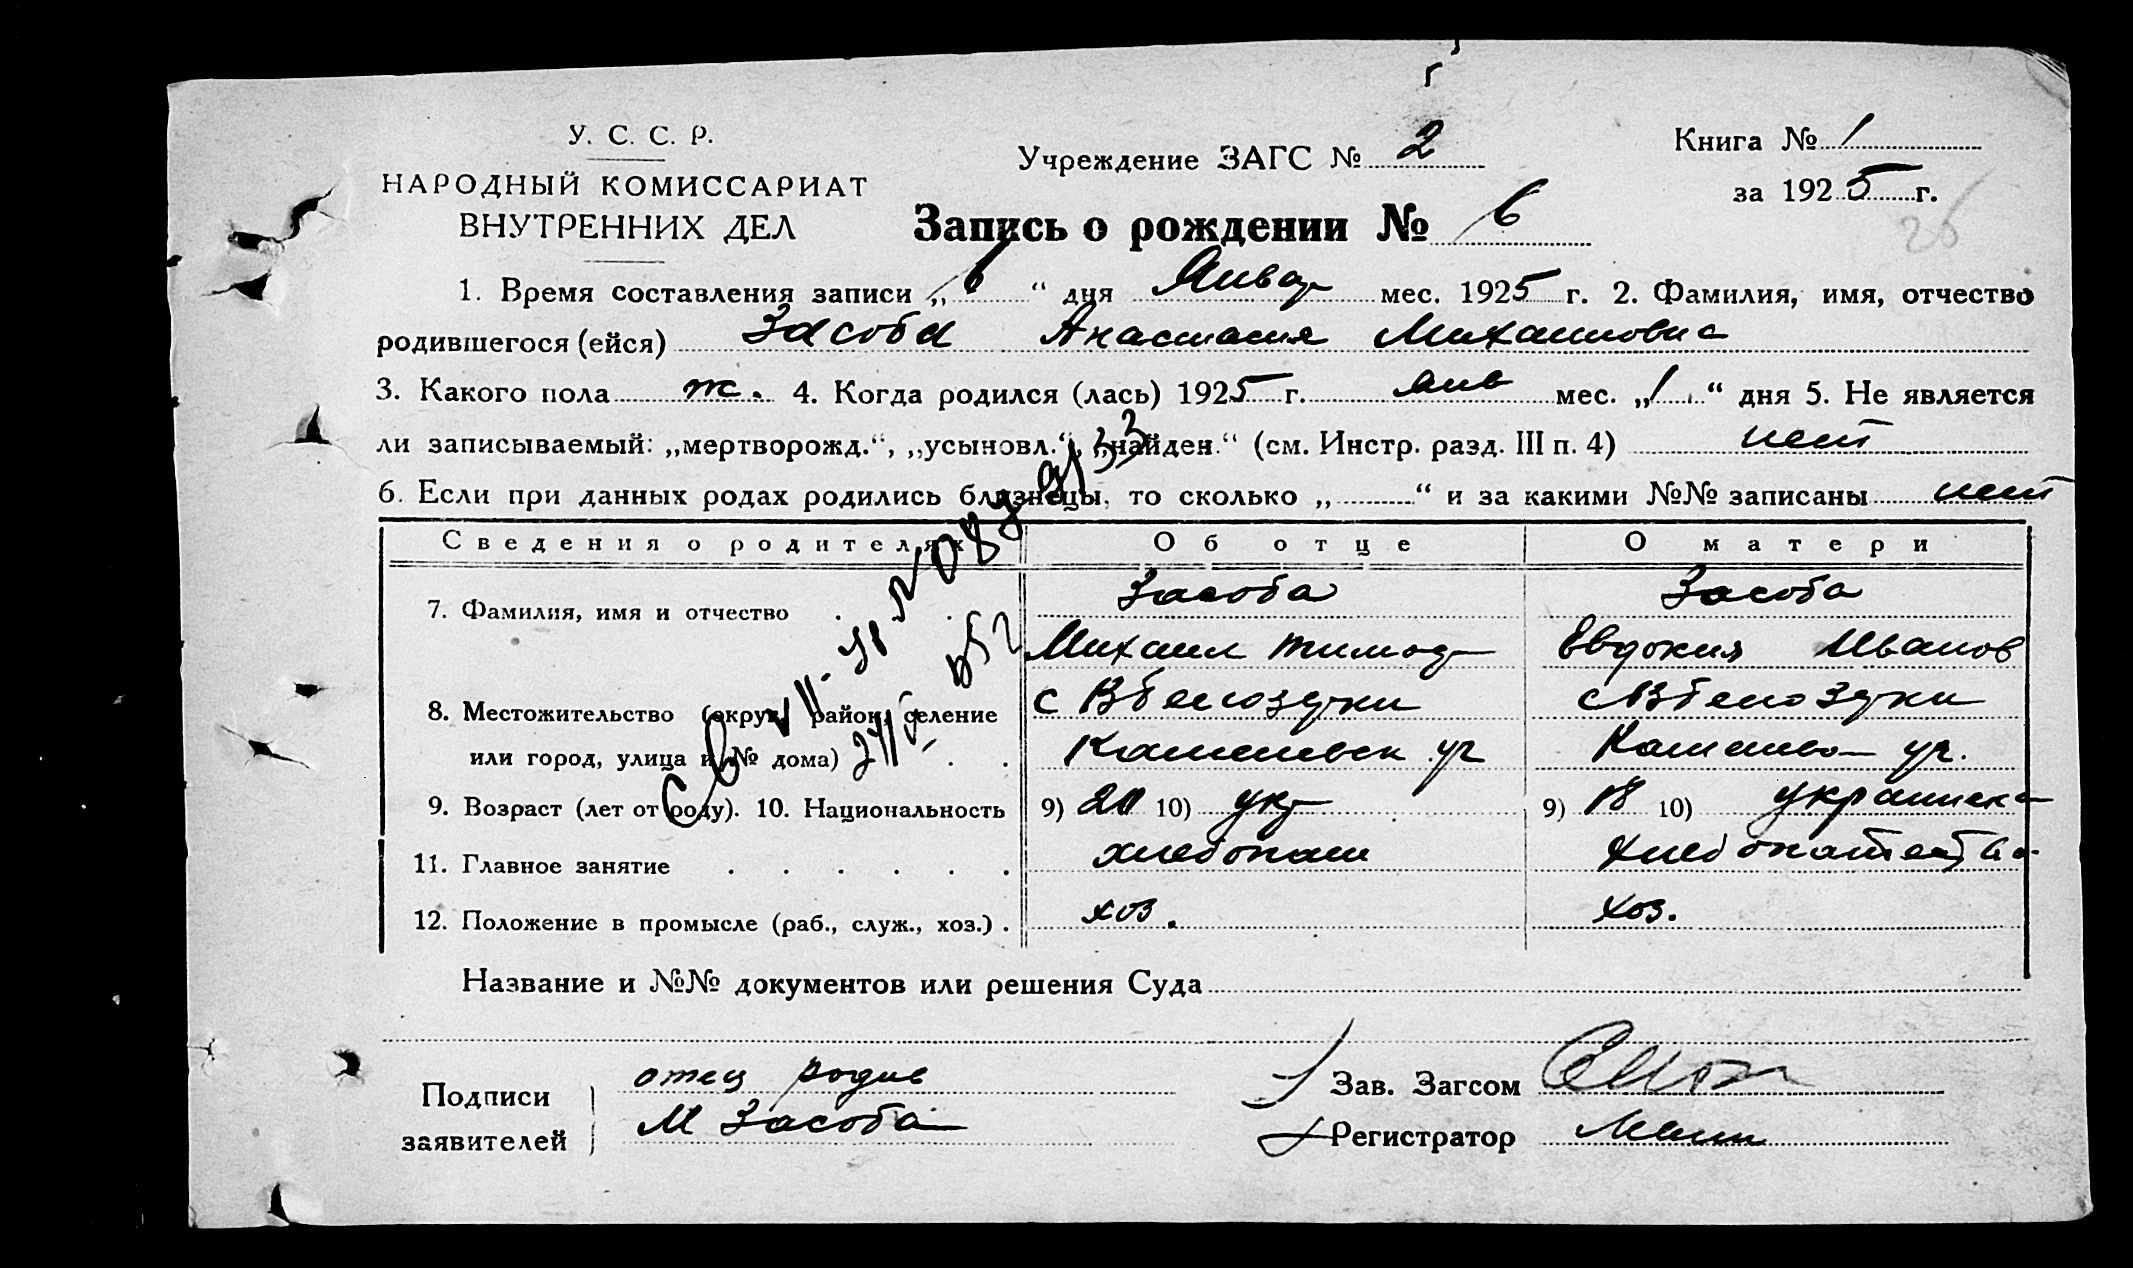 У. С. С. Р.
НАРОДНЫЙ КОМИССАРИАТ
ВНУТРЕННИХ ДЕЛ
Учреждение ЗАГС № 2
Книга № 1
за 1925 г.
Запись о рождении № 6
26
1. Время составления записи „6“ дня Январ мес. 1925 г. 2. Фамилия, имя, отчество
родившегося (ейся) Засоба Анастасия Михаиловна
3. Какого пола ж. 4. Когда родился (лась) 1925 г. янв мес. „1“ дня 5. Не является
ли записываемый: „мертворожд.“, „усыновл.“, „найден.“ (см. Инстр. разд. III п. 4) нет
6. Если при данных родах родились близнецы, то сколько „ “ и за какими №№ записаны нет
Сведения о родителях Об отце О матери
7. Фамилия, имя и отчество Засоба Засоба
Михаил Тимоф Евдокия Иванов
8. Местожительство (округ, район, селение с Вбелозерки с Вбелозерки
или город, улица и № дома) Каменевск ул Каменев ул.
9. Возраст (лет от роду). 10. Национальность 9) 20 10) укр 9) 18 10) украинск
11. Главное занятие хлебопаш хлебопашество
12. Положение в промысле (раб., служ., хоз.) хоз. хоз.
Название и №№ документов или решения Суда
Подписи заявителей отец родив
М Засоба
Зав. Загсом
Регистратор